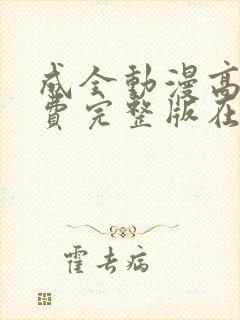 成全動漫高
費完整版在
霍去病